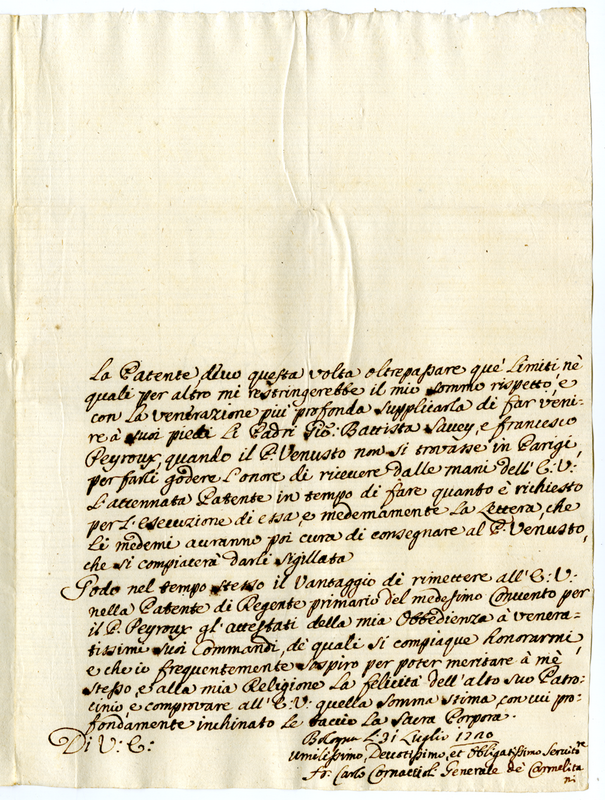 La Patente devo questa volta oltrepassare que' Limiti nè
quali per altro mi restringerebbe il mio sommo rispetto, e
con La venerazione più profonda supplicarla di far veni-
re à suoi piedi Li Padri Gio: Battista Savey, e Francesco
Peyroux, quando il P. Venusto non si trovasse in Parigi,
per farli godere L'onore di ricevere dalle mani dell'E: V:
L'accennata Patente in tempo di fare quanto è richiesto
per L'esecuzione di essa, e medemamente La Lettera, che
Li medemi auranno poi cura di consegnare al P. Venusto,
che si compiacerà darli sigillata
Godo nel tempo stesso il vantaggio di rimettere all'E: V:
nella Patente di Regente primario del medesimo Convento per
il P. Peyroux gl'attestati della mia Obbedienza à venera-
tissimi suoi Commandi, de quali si compiaque honorarmi,
e che io frequentemente sospiro per poter meritare à mè
stesso, e alla mia Religione La felicità dell'alto suo Patro-
cinio, e comprovare all'E: V: quella somma stima, con cui pro-
fondamente inchinato Le baccio La Sacra Porpora.
Di V: E:
Bologna Li 31 Luglio 1720
Umilissimo, Devotissimo, et Obligatissimo Servitore
Fr. Carlo Cornaccioli Generale de Carmelita
ni